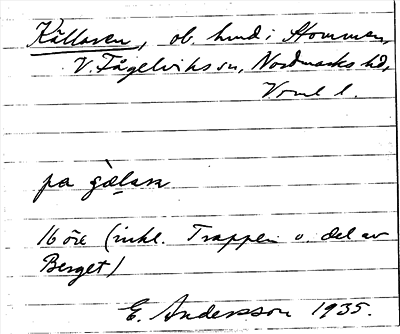 Källaren, ob. hmd i Hommen,
V. Fågelviks sn, Nordmarks hd,
Vrml l.
pa gälaɴ
16 öre (inkl. Trappen o. del av
Berget)
E. Andersson 1935.